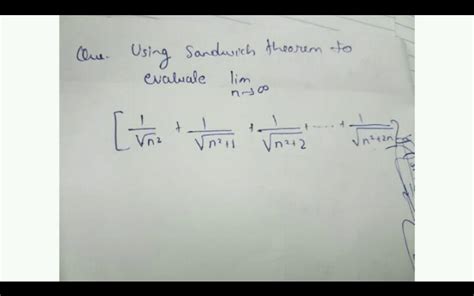 Que. Using Sandwich theorem to
evaluate lim
n→∞
[ 1/√n² + 1/√n²+1 + 1/√n²+2 + ..... + 1/√n²+2n ]